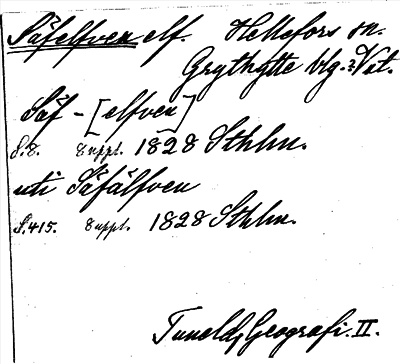 Säfelfven elf. Hellefors sn.
Grythytte blg. Vstm.
Säf-[elfven]
S. 8. 8 uppl. 1828 Sthlm.
uti Säfälfven
S. 415. 8 uppl. 1828 Sthlm.
Tuneld, Geografi. II.